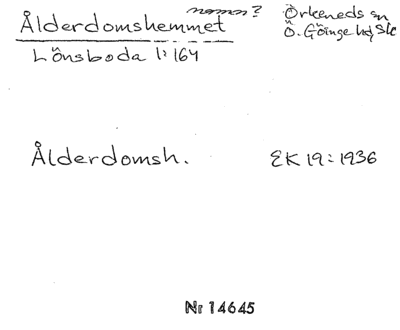 Ålderdomshemmet namn? Örkeneds sn
Lönsboda 1:164 Ö. Göinge hd Sk
Ålderdomsh. EK 19:1936
Nr 14645